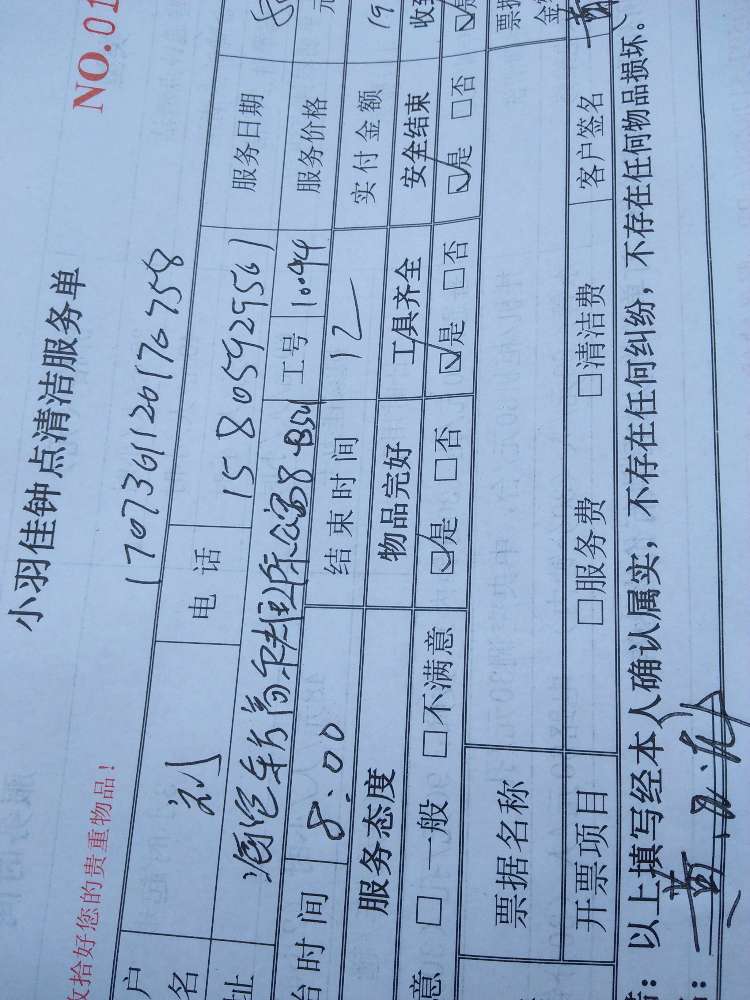 小羽佳钟点清洁服务单
NO.01
拾好您的贵重物品！
1707361120170758
户名 刘 电话 15805929561 服务日期
址 工号 1094 服务价格 元
台时间 8:00 结束时间 12 实付金额 19
服务态度 物品完好 工具齐全 安全结束 收
意 □一般 □不满意 ☑是 □否 ☑是 □否 ☑是 □否
票据名称 票据 金
开票项目 □服务费 □清洁费 客户签名
：以上填写经本人确认属实，不存在任何纠纷，不存在任何物品损坏。